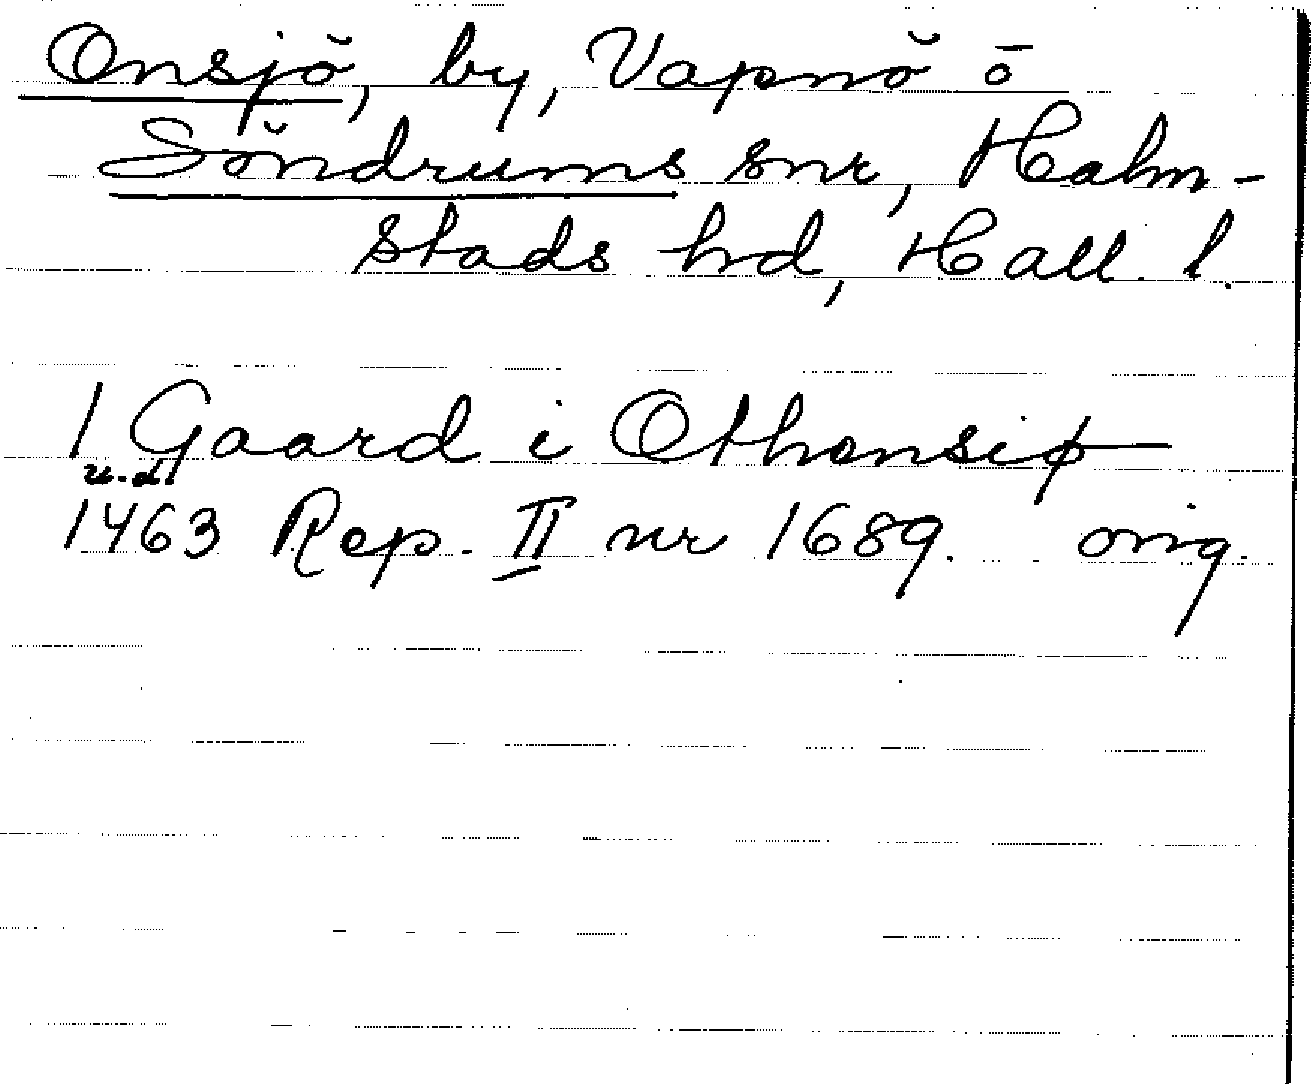 Onsjö, by, Vapnö o
Söndrums snr, Halm-
stads hd, Hall. l.
1 Gaard i Othensiø
u.d.
1463 Rep. II nr 1689. orig.